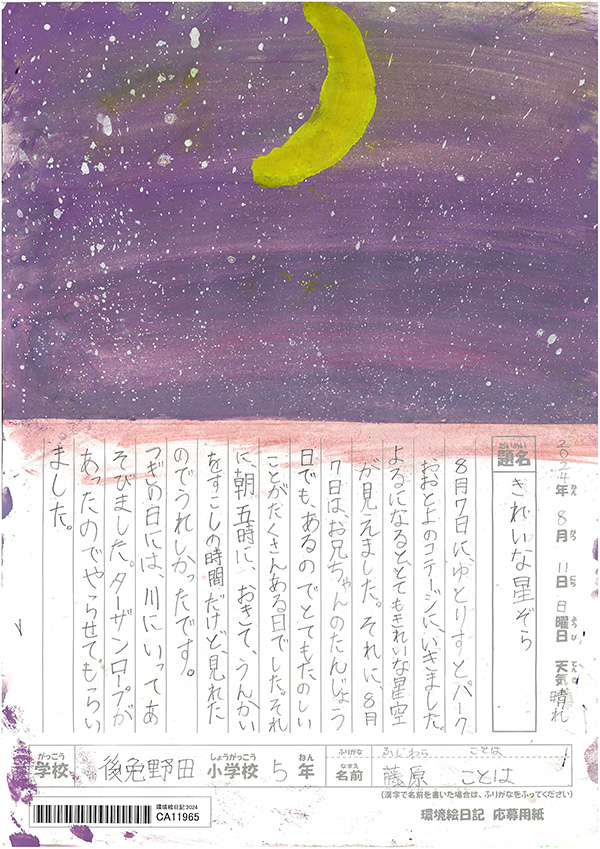 2024年 8月 11日 日曜日 天気 晴れ
ねん がつ にち ようび てんき
だいめい
題名 きれいな星ぞら
8月7日にゆとりすとパーク
おおとよのコテージに、いきました。
よるになるととてもきれいな星空
が見えました。それに、8月
7日は、お兄ちゃんのたんじょう
日でも、あるのでとてもたのしい
ことがたくさんある日でした。それ
に、朝五時に、おきて、うんかい
をすこしの時間だけど、見れた
のでうれしかったです。
つぎの日には、川にいってあ
そびました。ターザンロープが
あったのでやらせてもらい
ました。
がっこう しょうがっこう ねん
学校 後免野田 小学校 5年
ふりがな ふじわら ことは
なまえ
名前 藤原 ことは
(漢字で名前を書いた場合は、ふりがなをふってください)
環境絵日記2024
CA11965
環境絵日記 応募用紙